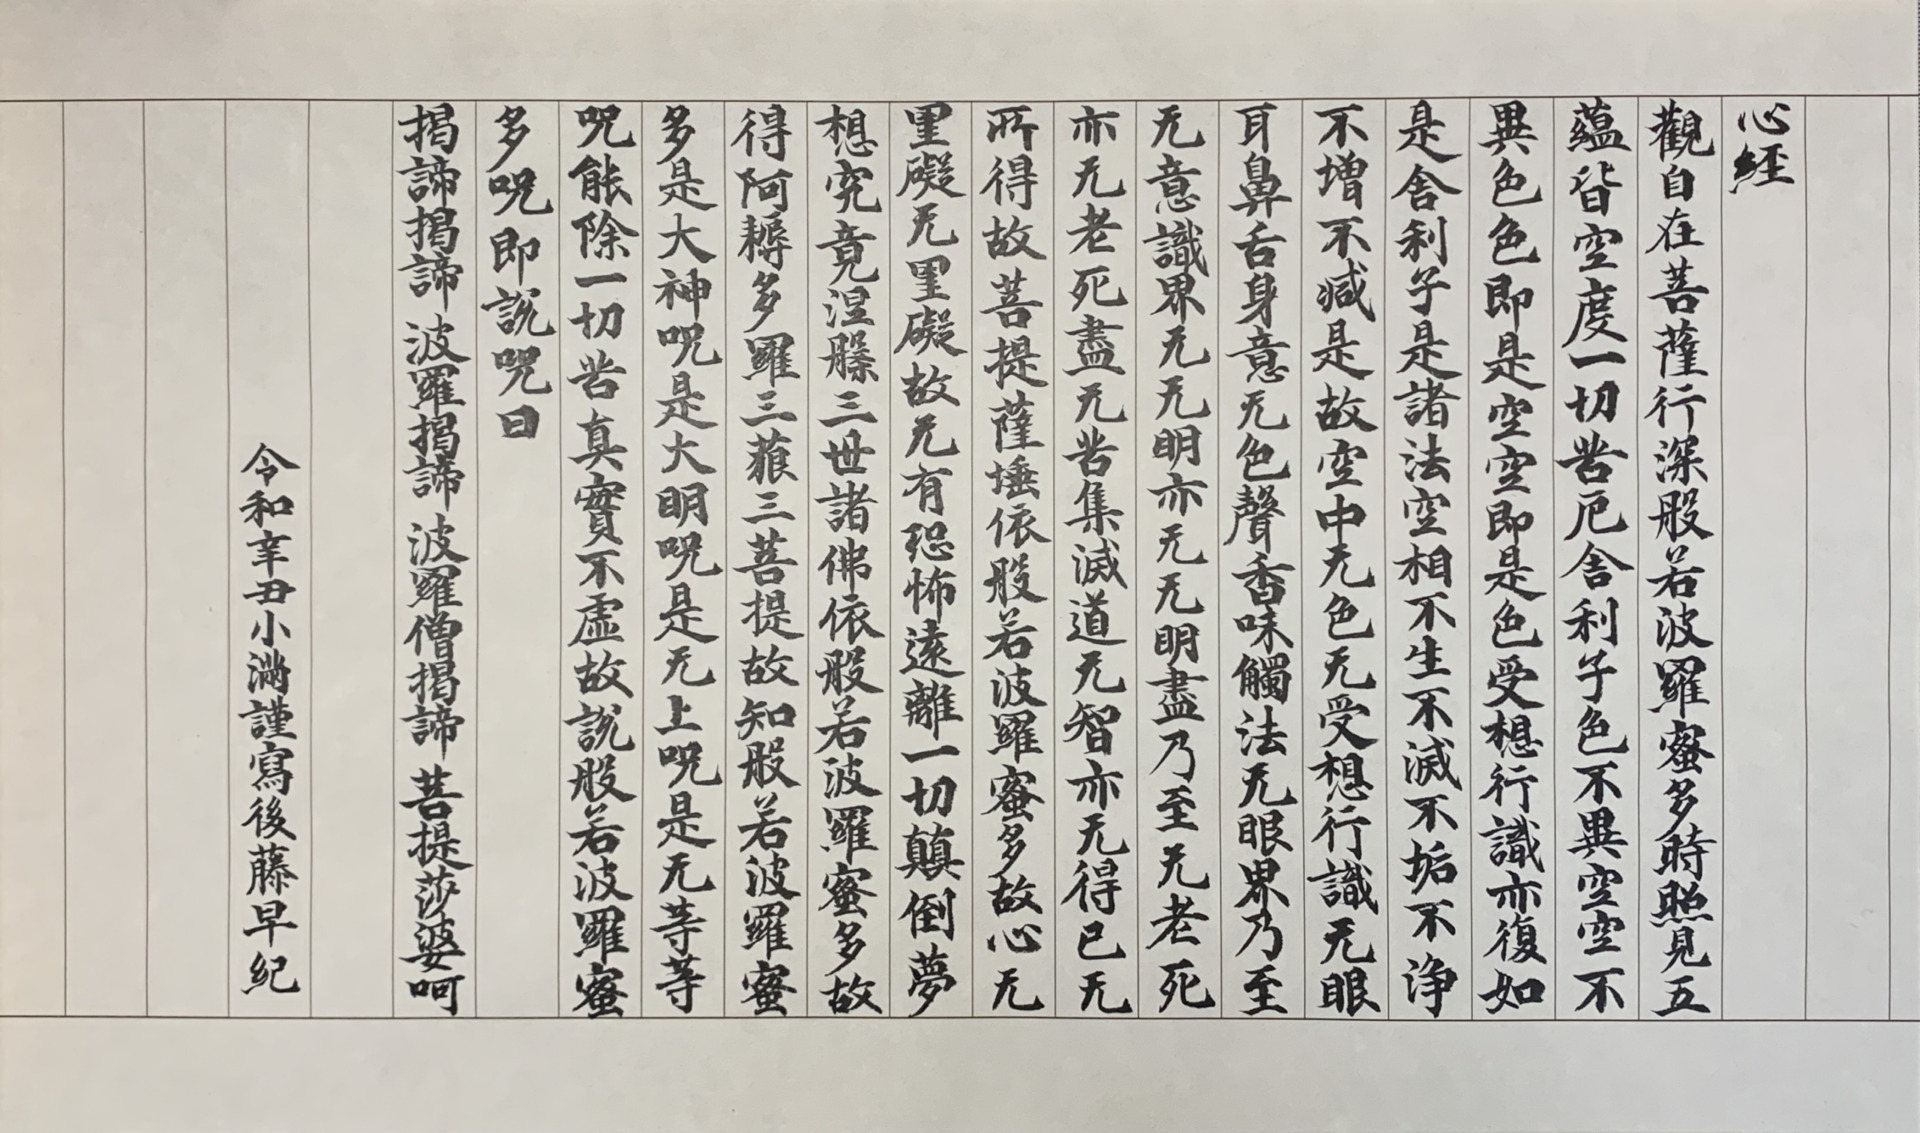 心経
觀自在菩薩行深般若波羅蜜多時照見五
蘊皆空度一切苦厄舍利子色不異空空不
異色色即是空空即是色受想行識亦復如
是舍利子是諸法空相不生不滅不垢不浄
不增不減是故空中无色无受想行識无眼
耳鼻舌身意无色聲香味觸法无眼界乃至
无意識界无无明亦无无明盡乃至无老死
亦无老死盡无苦集滅道无智亦无得已无
所得故菩提薩埵依般若波羅蜜多故心无
罣礙无罣礙故无有恐怖遠離一切顛倒夢
想究竟涅槃三世諸佛依般若波羅蜜多故
得阿耨多羅三藐三菩提故知般若波羅蜜
多是大神呪是大明呪是无上呪是无等等
呪能除一切苦真實不虛故說般若波羅蜜
多呪即說呪曰
揭諦揭諦 波羅揭諦 波羅僧揭諦 菩提莎婆呵
令和辛丑小満謹寫後藤早紀